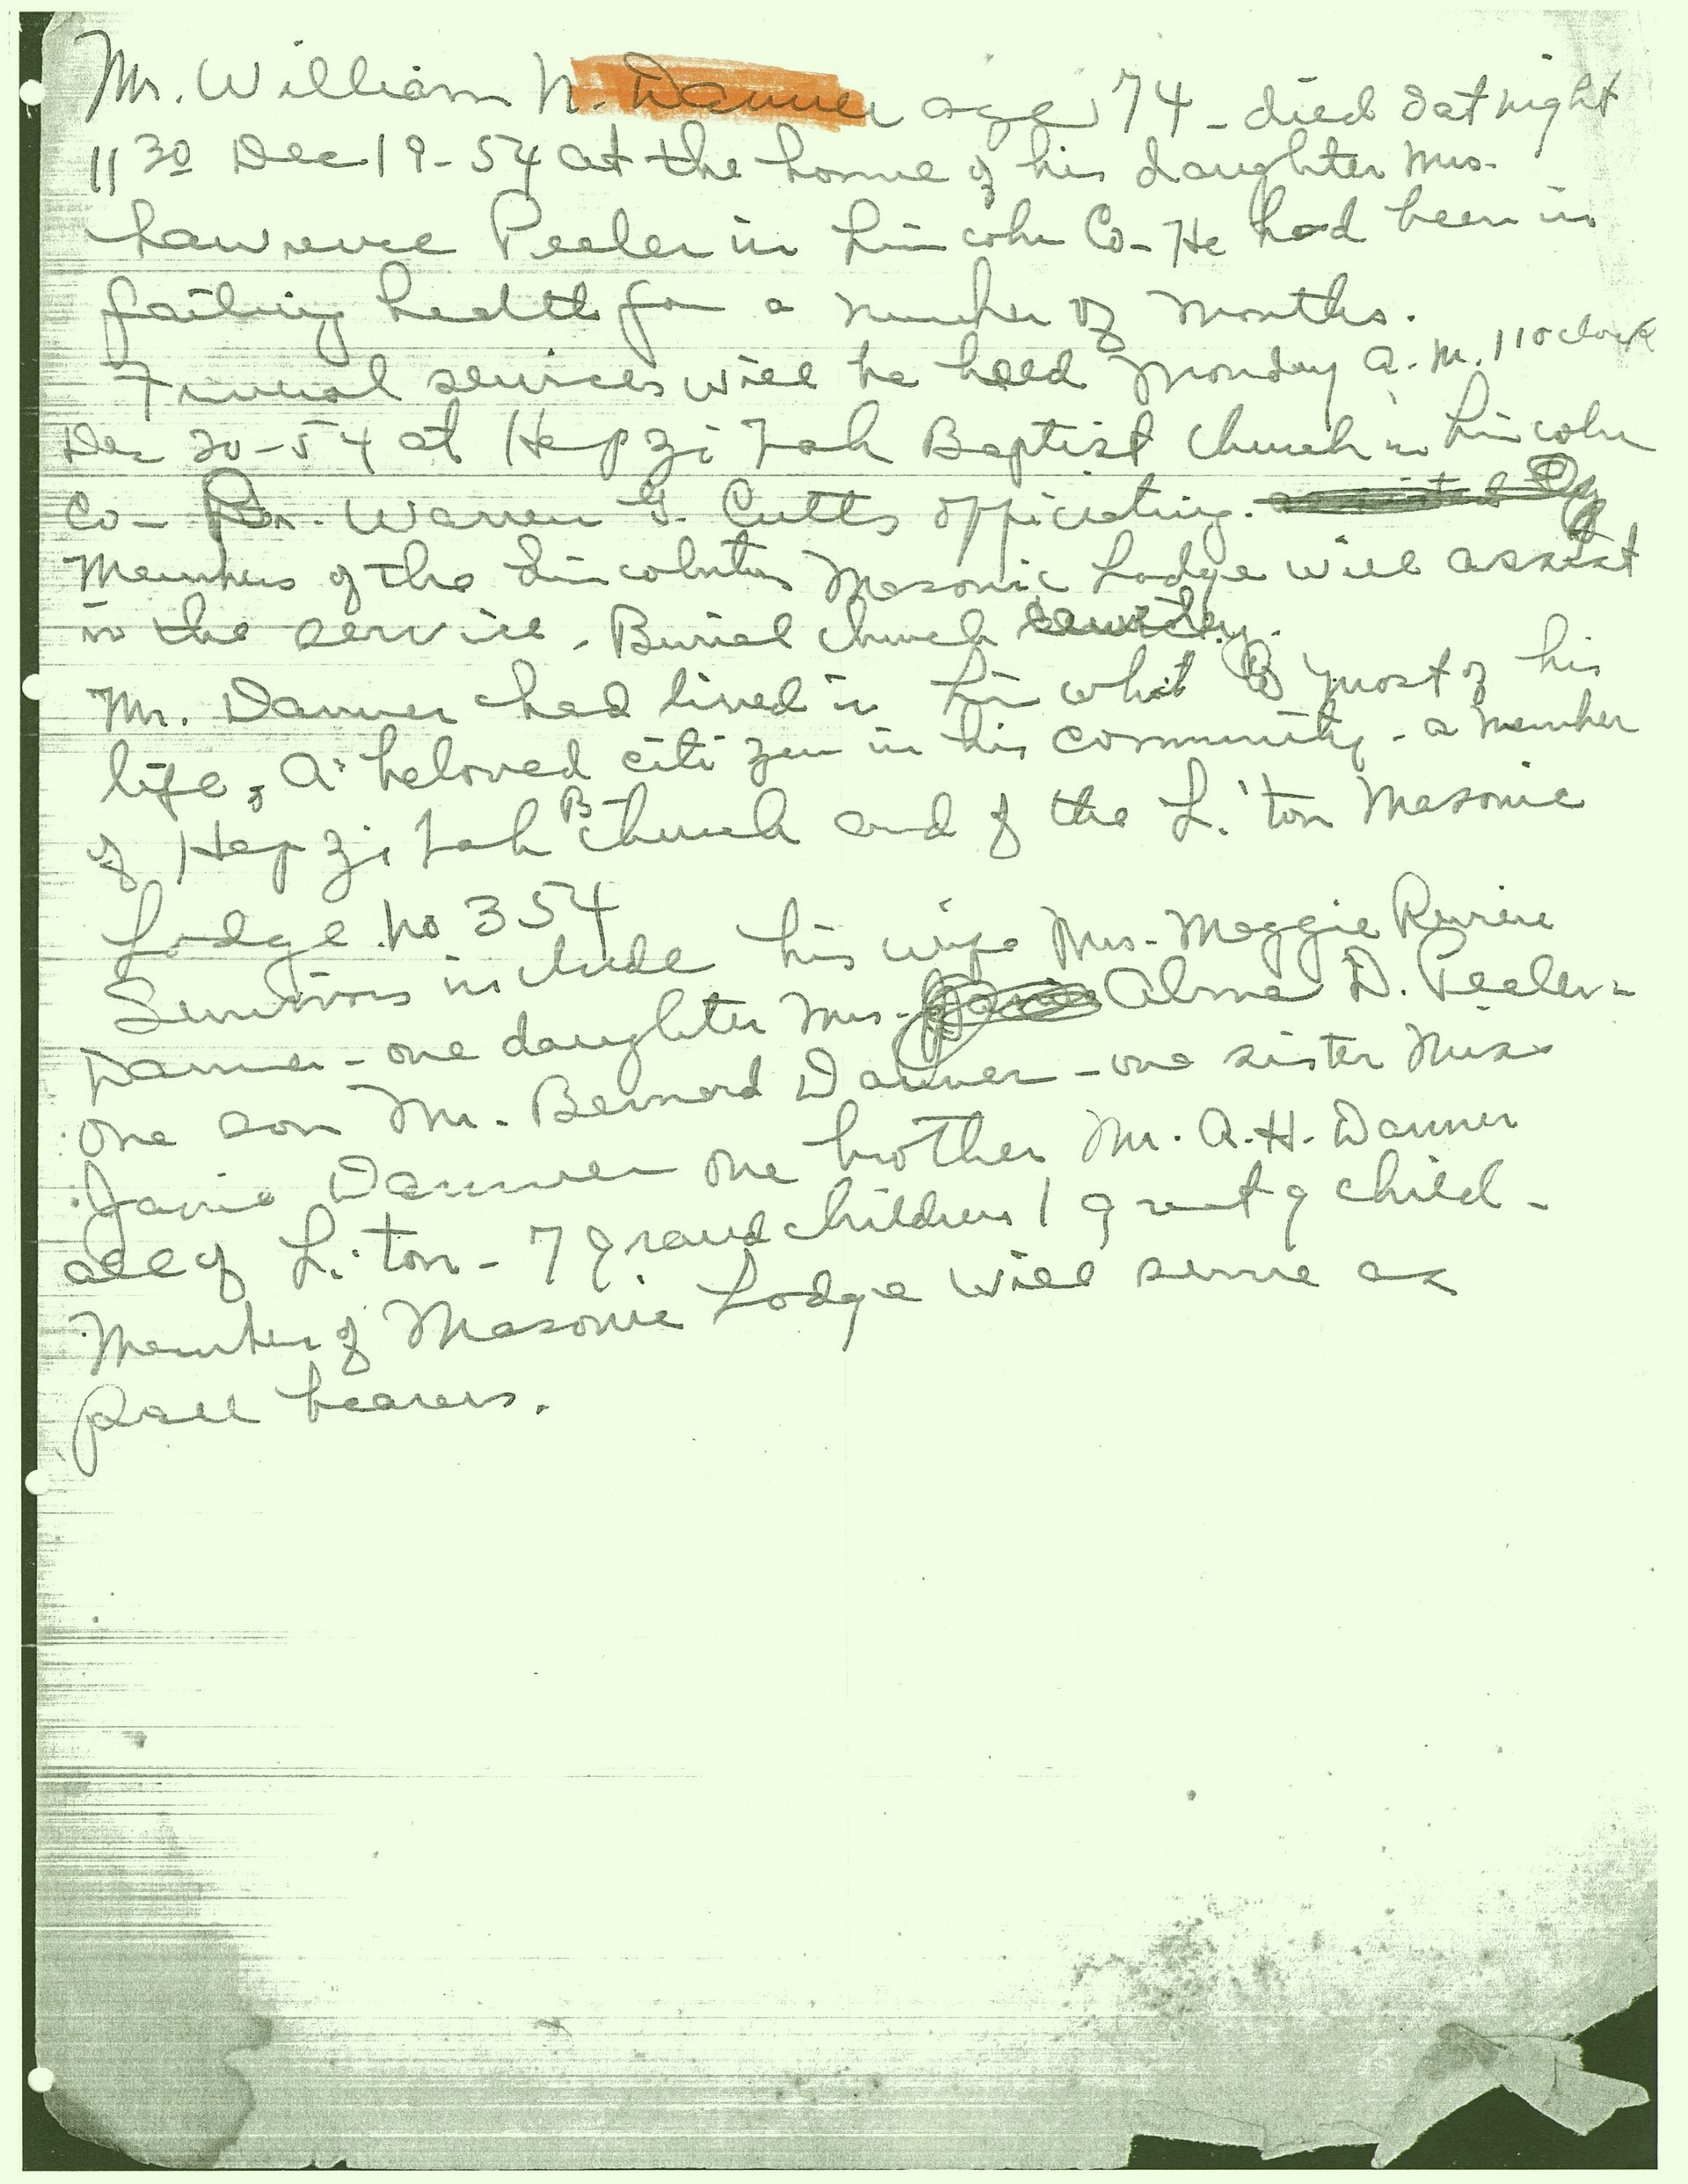 Mr. William N. Danner age 74 - died Sat night
11 30 Dec 19-54 at the home of his daughter Mrs.
Lawrence Peeler in Lincoln Co - He had been in
failing health for a number of months.
Funeral services will be held Monday a.m. 11 oclock
Dec 20-54 at Hepzibah Baptist Church in Lincoln
Co - Warren G. Cutts officiating.
Members of the Lincolnton Masonic Lodge will assist
in the service. Burial church
Mr. Danner had lived in Lin most of his
life, A beloved citizen in his community - a member
of Hepzibah B Church and of the L.'ton Masonic
Lodge no 354
Survivors include his wife Mrs. Maggie
Danner - one daughter Mrs. Alma D. Peeler -
One son Mr. Bernard Danner - one sister Miss
Janie Danner one brother Mr. A.H. Danner
all of L.'ton - 7 grandchildren 1 great g child -
Member of Masonic Lodge will serve as
pall bearers.